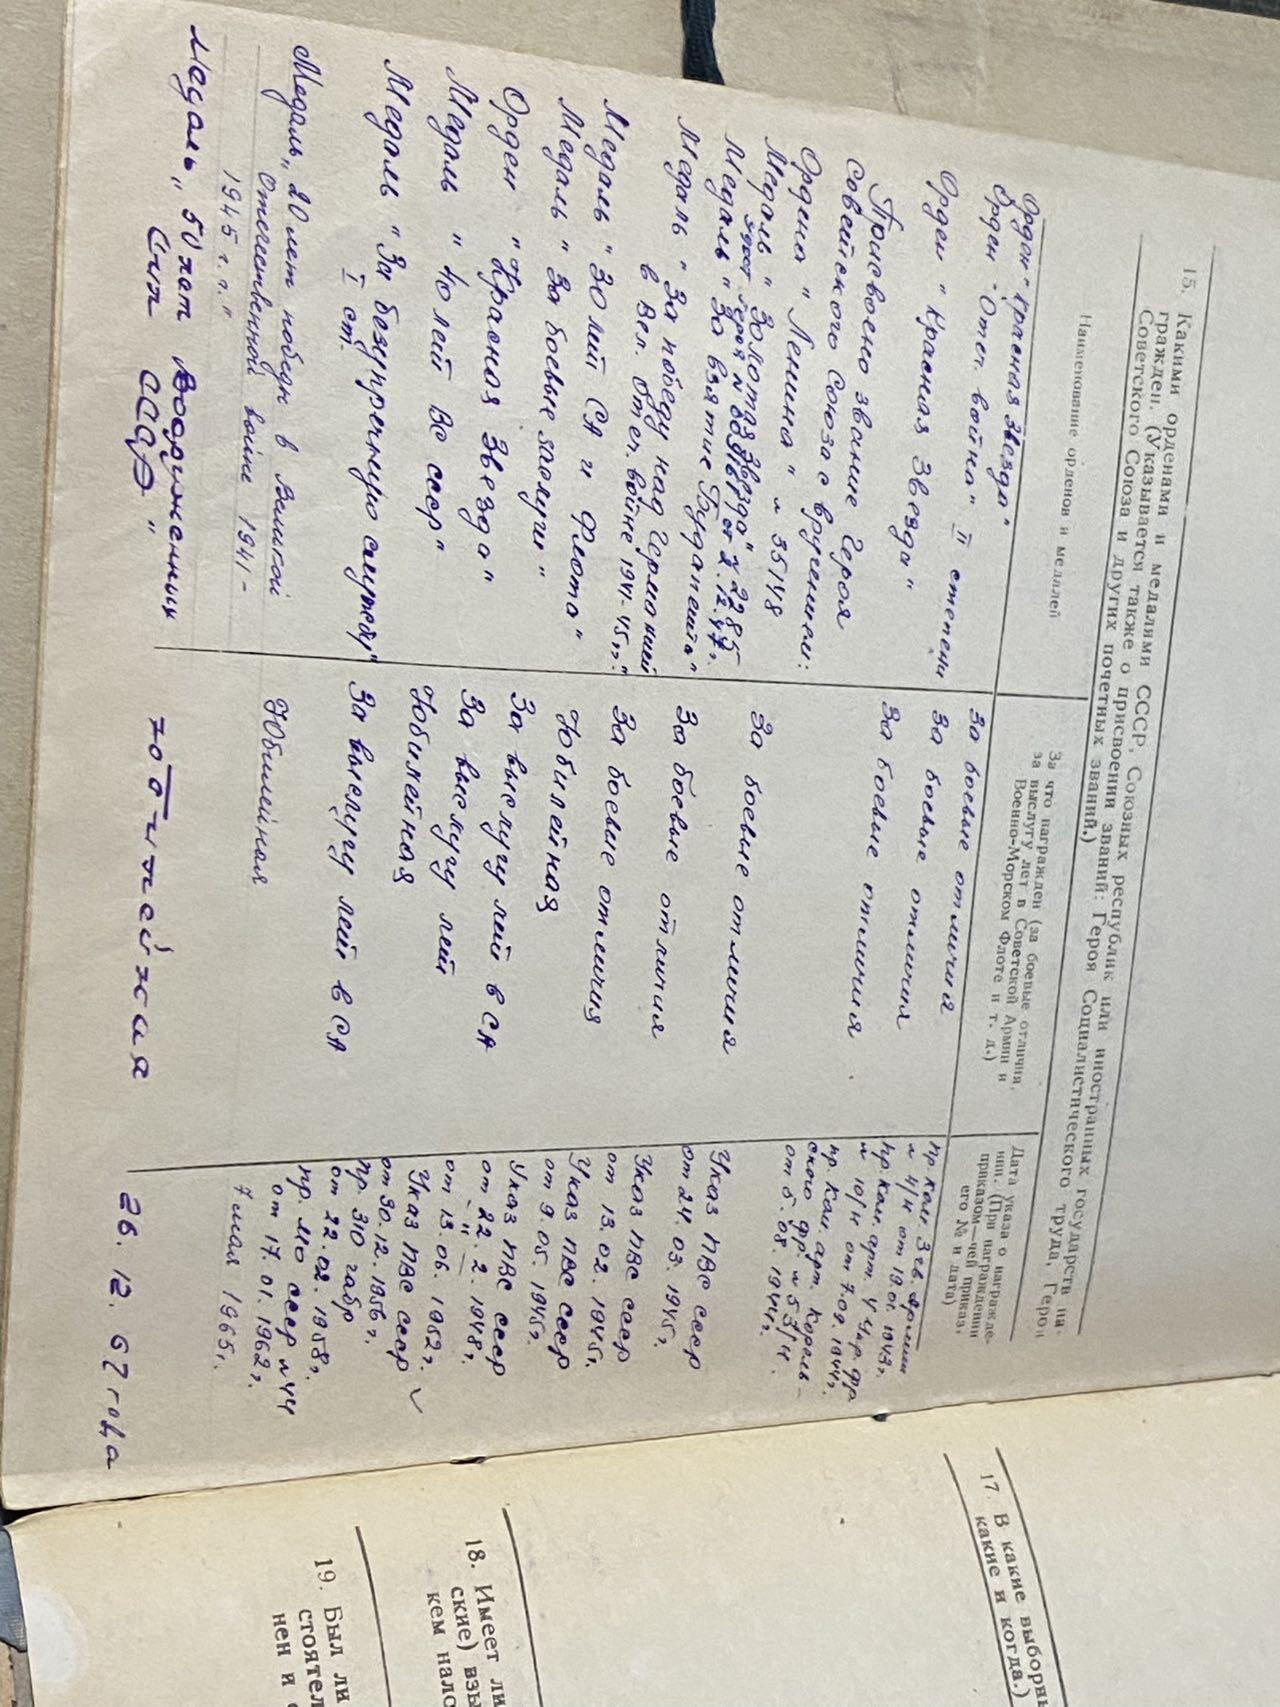 15. Какими орденами и медалями СССР, Союзных республик или иностранных государств на-
гражден. (Указывается также о присвоении званий: Героя Социалистического труда, Героя
Советского Союза и других почетных званий.)
Наименование орденов и медалей
За что награжден (за боевые отличия,
за выслугу лет в Советской Армии и
Военно-Морском Флоте и т. д.)
Дата указа о награжде-
нии. (При награждении
приказом—чей приказ,
его № и дата)
Орден "Красная Звезда"
За боевые отличия
Пр. Ком. 3 гв. Армии
№ 4/н от 19.01.1943г.
Орден "Отеч. война" II степени
За боевые отличия
Пр. Ком. арт. 4 Укр. фр
№ 10/н от 7.09.1944г.
Орден "Красная Звезда"
За боевые отличия
пр. Ком. арт. Карель-
ского фр. № 53/н.
от 5.08.1944г.
Присвоено звание Героя
Советского Союза с вручением:
Ордена "Ленина" № 35148
Медаль "Золотая Звезда" № 2285
За боевые отличия
Указ ПВС СССР
от 24.03.1945г.
Медаль "За взятие Будапешта"
За боевые отличия
Указ ПВС СССР
от 13.02.1945г.
Медаль "За победу над Германией
в Вел. Отеч. войне 1941-45гг."
За боевые отличия
Указ ПВС СССР
от 9.05.1945г.
Медаль "30 лет СА и Флота"
Юбилейная
Указ ПВС СССР
от 22.2.1948г.
Медаль "За боевые заслуги"
За выслугу лет в СА
от 13.06.1952г.
Орден "Красная Звезда"
За выслугу лет
Указ ПВС СССР
от 30.12.1956г.
Медаль "40 лет ВС СССР"
Юбилейная
пр. 310
от 22.02.1958г.
Медаль "За безупречную службу"
I ст.
За выслугу лет в СА
пр. МО СССР № 44
от 17.01.1962г.
Медаль "20 лет победы в Великой
Отечественной войне 1941-
1945 г.г."
Юбилейная
7 мая 1965г.
Медаль "50 лет Вооруженных
Сил СССР"
юбилейная
26.12.67 года
17. В какие выборн
какие и когда.)
18. Имеет ли
ские) взы
кем нало
19. Был ли
стоятел
нен и